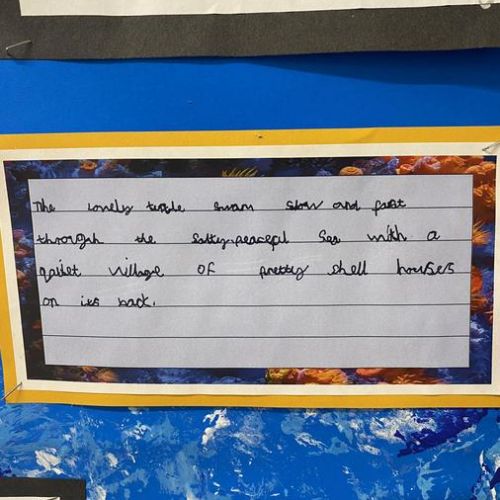 The lonely turtle swam slow and fast
through the salty, peaceful Sea with a
quiet village of pretty shell houses
on its back.